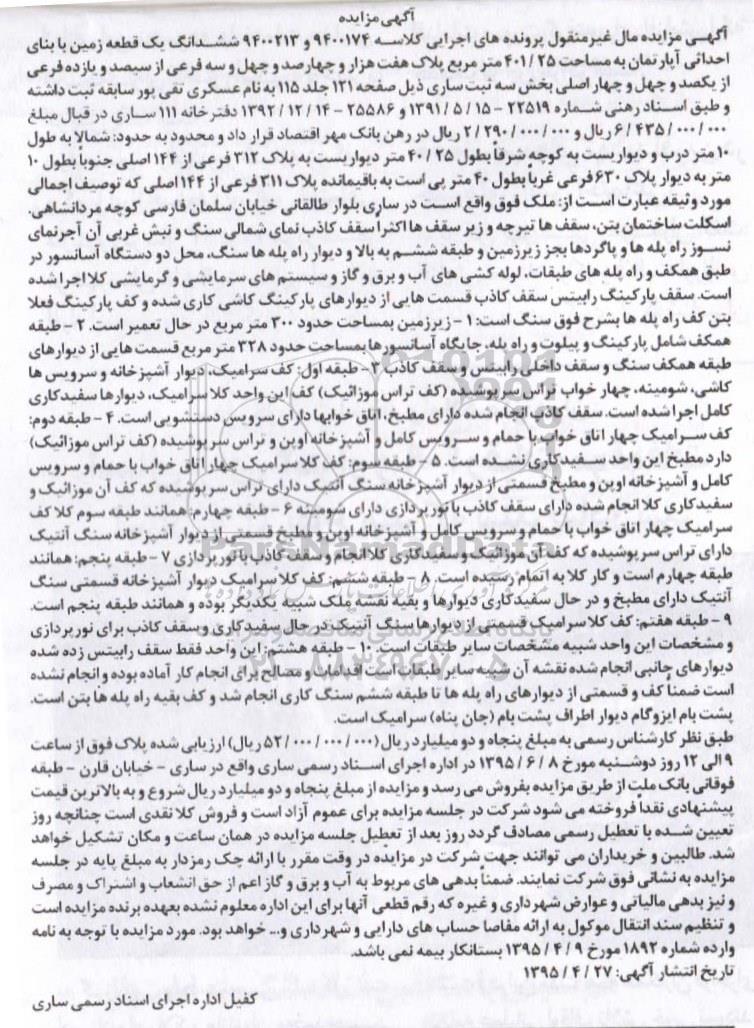 آگهی مزایده
آگهی مزایده مال غیرمنقول پرونده های اجرایی کلاسه ۹۴۰۰۱۷۴ و ۹۴۰۰۲۱۳ ششدانگ یک قطعه زمین با بنای
احداثی آپارتمان به مساحت ۴۰۱/۲۵ متر مربع پلاک هفت هزار و چهارصد و چهل و سه فرعی از سیصد و یازده فرعی
از یکصد و چهل و چهار اصلی بخش سه ثبت ساری ذیل صفحه ۱۲۱ جلد ۱۱۵ به نام عسکری تقی پور سابقه ثبت داشته
و طبق اسناد رهنی شماره ۲۲۵۱۹ - ۱۳۹۱/۵/۱۵ و ۲۵۵۸۶ - ۱۳۹۲/۱۲/۱۴ دفترخانه ۱۱۱ ساری در قبال مبلغ
۶/۴۳۵/۰۰۰/۰۰۰ ریال و ۲/۲۹۰/۰۰۰/۰۰۰ ریال در رهن بانک مهر اقتصاد قرار داد و محدود به حدود: شمالاً به طول
۱۰ متر درب و دیواریست به کوچه شرقاً بطول ۴۰/۲۵ متر دیواریست به پلاک ۳۱۲ فرعی از ۱۴۴ اصلی جنوباً بطول ۱۰
متر به دیوار پلاک ۶۳۰ فرعی غرباً بطول ۴۰ متر پی است به باقیمانده پلاک ۳۱۱ فرعی از ۱۴۴ اصلی که توصیف اجمالی
مورد وثیقه عبارت است از: ملک فوق واقع است در ساری بلوار طالقانی خیابان سلمان فارسی کوچه مردانشاهی.
اسکلت ساختمان بتن، سقف ها تیرچه و زیر سقف ها اکثراً سقف کاذب نمای شمالی سنگ و نبش غربی آن آجرنمای
نسوز راه پله ها و پاگردها بجز زیرزمین و طبقه ششم به بالا و دیوار راه پله ها سنگ، محل دو دستگاه آسانسور در
طبق همکف و راه پله های طبقات، لوله کشی های آب و برق و گاز و سیستم های سرمایشی و گرمایشی کلا اجرا شده
است. سقف پارکینگ رابیتس سقف کاذب قسمت هایی از دیوارهای پارکینگ کاشی کاری شده و کف پارکینگ فعلا
بتن کف راه پله ها بشرح فوق سنگ است: ۱ - زیرزمین بمساحت حدود ۳۰۰ متر مربع در حال تعمیر است. ۲ - طبقه
همکف شامل پارکینگ و پیلوت و راه پله، جایگاه آسانسورها بمساحت حدود ۳۲۸ متر مربع قسمت هایی از دیوارهای
طبقه همکف سنگ و سقف داخلی رابیتس و سقف کاذب ۳ - طبقه اول: کف سرامیک، دیوار آشپزخانه و سرویس ها
کاشی، شومینه، چهار خواب تراس سرپوشیده (کف تراس موزائیک) کف این واحد کلا سرامیک، دیوارها سفیدکاری
کامل اجرا شده است. سقف کاذب انجام شده دارای مطبخ، اتاق خوابها دارای سرویس دستشویی است. ۴ - طبقه دوم:
کف سرامیک چهار اتاق خواب با حمام و سرویس کامل و آشپزخانه اوپن و تراس سرپوشیده (کف تراس موزائیک)
دارد مطبخ این واحد سفیدکاری نشده است. ۵ - طبقه سوم: کف کلا سرامیک چهار اتاق خواب با حمام و سرویس
کامل و آشپزخانه اوپن و مطبخ قسمتی از دیوار آشپزخانه سنگ آنتیک دارای تراس سرپوشیده که کف آن موزائیک و
سفیدکاری کلا انجام شده دارای سقف کاذب با نورپردازی دارای شومینه ۶ - طبقه چهارم: همانند طبقه سوم کلا کف
سرامیک چهار اتاق خواب با حمام و سرویس کامل و آشپزخانه اوپن و مطبخ قسمتی از دیوار آشپزخانه سنگ آنتیک
دارای تراس سرپوشیده که کف آن موزائیک و سفیدکاری کلا انجام و سقف کاذب با نورپردازی ۷ - طبقه پنجم: همانند
طبقه چهارم است و کار کلا به اتمام رسیده است. ۸ - طبقه ششم: کف کلا سرامیک دیوار آشپزخانه قسمتی سنگ
آنتیک دارای مطبخ و در حال سفیدکاری دیوارها و بقیه نقشه ملک شبیه یکدیگر بوده و همانند طبقه پنجم است.
۹ - طبقه هفتم: کف کلا سرامیک قسمتی از دیوارها سنگ آنتیک در حال سفیدکاری و سقف کاذب برای نورپردازی
و مشخصات این واحد شبیه مشخصات سایر طبقات است. ۱۰ - طبقه هشتم: این واحد فقط سقف رابیتس زده شده
دیوارهای جانبی انجام شده نقشه آن شبیه سایر طبقات است اقدامات و مصالح برای انجام کار آماده بوده و انجام نشده
است ضمناً کف و قسمتی از دیوارهای راه پله ها تا طبقه ششم سنگ کاری انجام شد و کف بقیه راه پله ها بتن است.
پشت بام ایزوگام دیوار اطراف پشت بام (جان پناه) سرامیک است.
طبق نظر کارشناس رسمی به مبلغ پنجاه و دو میلیارد ریال (۵۲/۰۰۰/۰۰۰/۰۰۰ ریال) ارزیابی شده پلاک فوق از ساعت
۹ الی ۱۲ روز دوشنبه مورخ ۱۳۹۵/۶/۸ در اداره اجرای اسناد رسمی ساری واقع در ساری - خیابان قارن - طبقه
فوقانی بانک ملت از طریق مزایده بفروش می رسد و مزایده از مبلغ پنجاه و دو میلیارد ریال شروع و به بالاترین قیمت
پیشنهادی نقداً فروخته می شود شرکت در جلسه مزایده برای عموم آزاد است و فروش کلا نقدی است چنانچه روز
تعیین شده با تعطیل رسمی مصادف گردد روز بعد از تعطیل جلسه مزایده در همان ساعت و مکان تشکیل خواهد
شد. طالبین و خریداران می توانند جهت شرکت در مزایده در وقت مقرر با ارائه چک رمزدار به مبلغ پایه در جلسه
مزایده به نشانی فوق شرکت نمایند. ضمناً بدهی های مربوط به آب و برق و گاز اعم از حق انشعاب و اشتراک و مصرف
و نیز بدهی مالیاتی و عوارض شهرداری و غیره که رقم قطعی آنها برای این اداره معلوم نشده بعهده برنده مزایده است
و تنظیم سند انتقال موکول به ارائه مفاصا حساب های دارایی و شهرداری و... خواهد بود. مورد مزایده با توجه به نامه
وارده شماره ۱۸۹۲ مورخ ۱۳۹۵/۴/۹ بستانکار بیمه نمی باشد.
تاریخ انتشار آگهی: ۱۳۹۵/۴/۲۷
کفیل اداره اجرای اسناد رسمی ساری